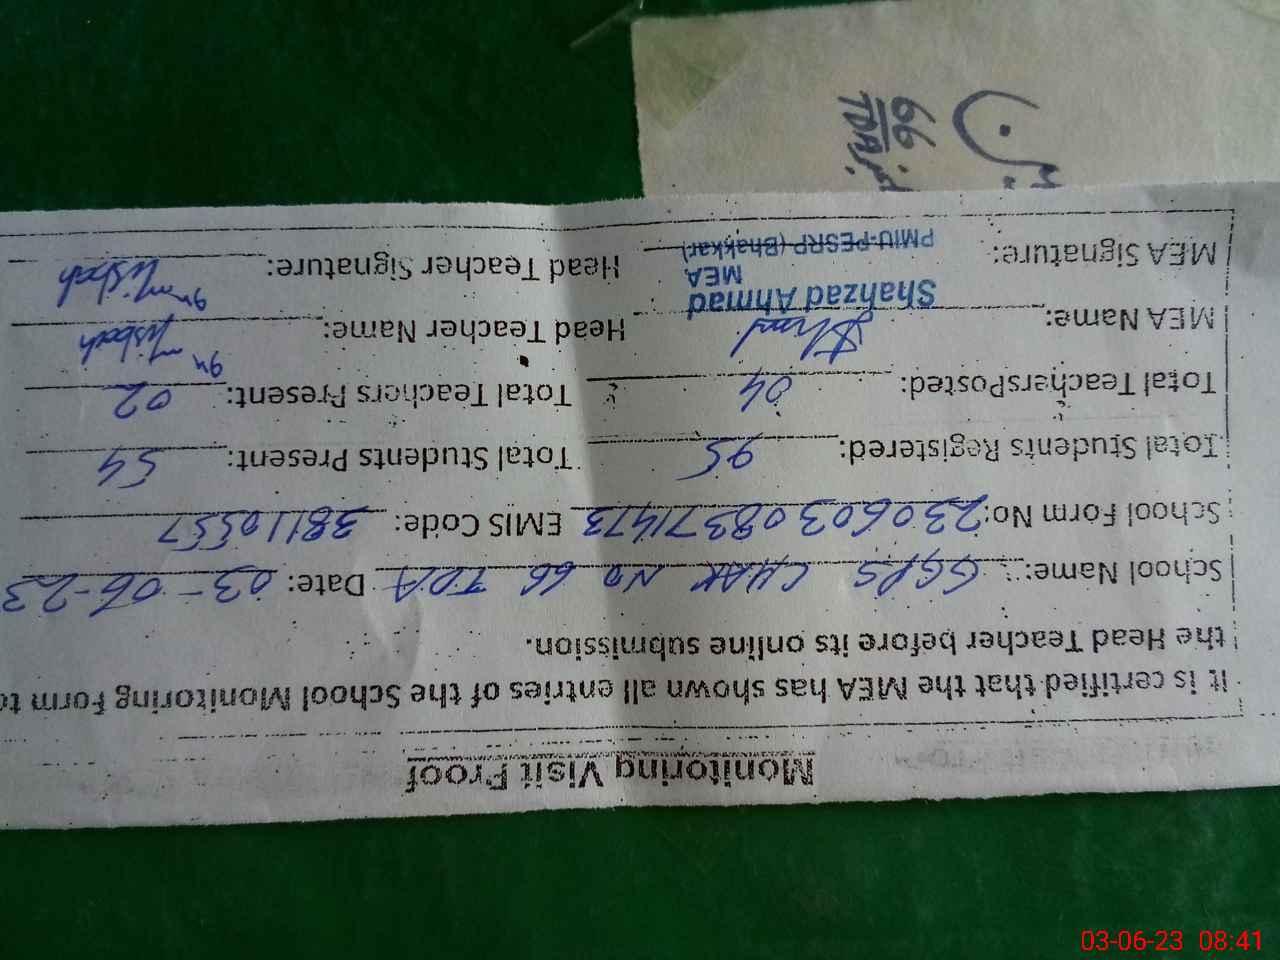 Monitoring Visit Proof
It is certified that the MEA has shown all entries of the School Monitoring Form to
the Head Teacher before its online submission.
School Name: GGPS CHAK NO 66 TDA Date: 03-06-23
School Form No: 23060308371473 EMIS Code: 38110557
Total Students Registered: 95 Total Students Present: 54
Total TeachersPosted: 04 Total Teachers Present: 02
MEA Name: Head Teacher Name: Misbah
Shahzad Ahmad
MEA,
PMIU-PESRP (Bhakkar)
MEA Signature: Head Teacher Signature: Misbah
66
TDA
03-06-23 08:41